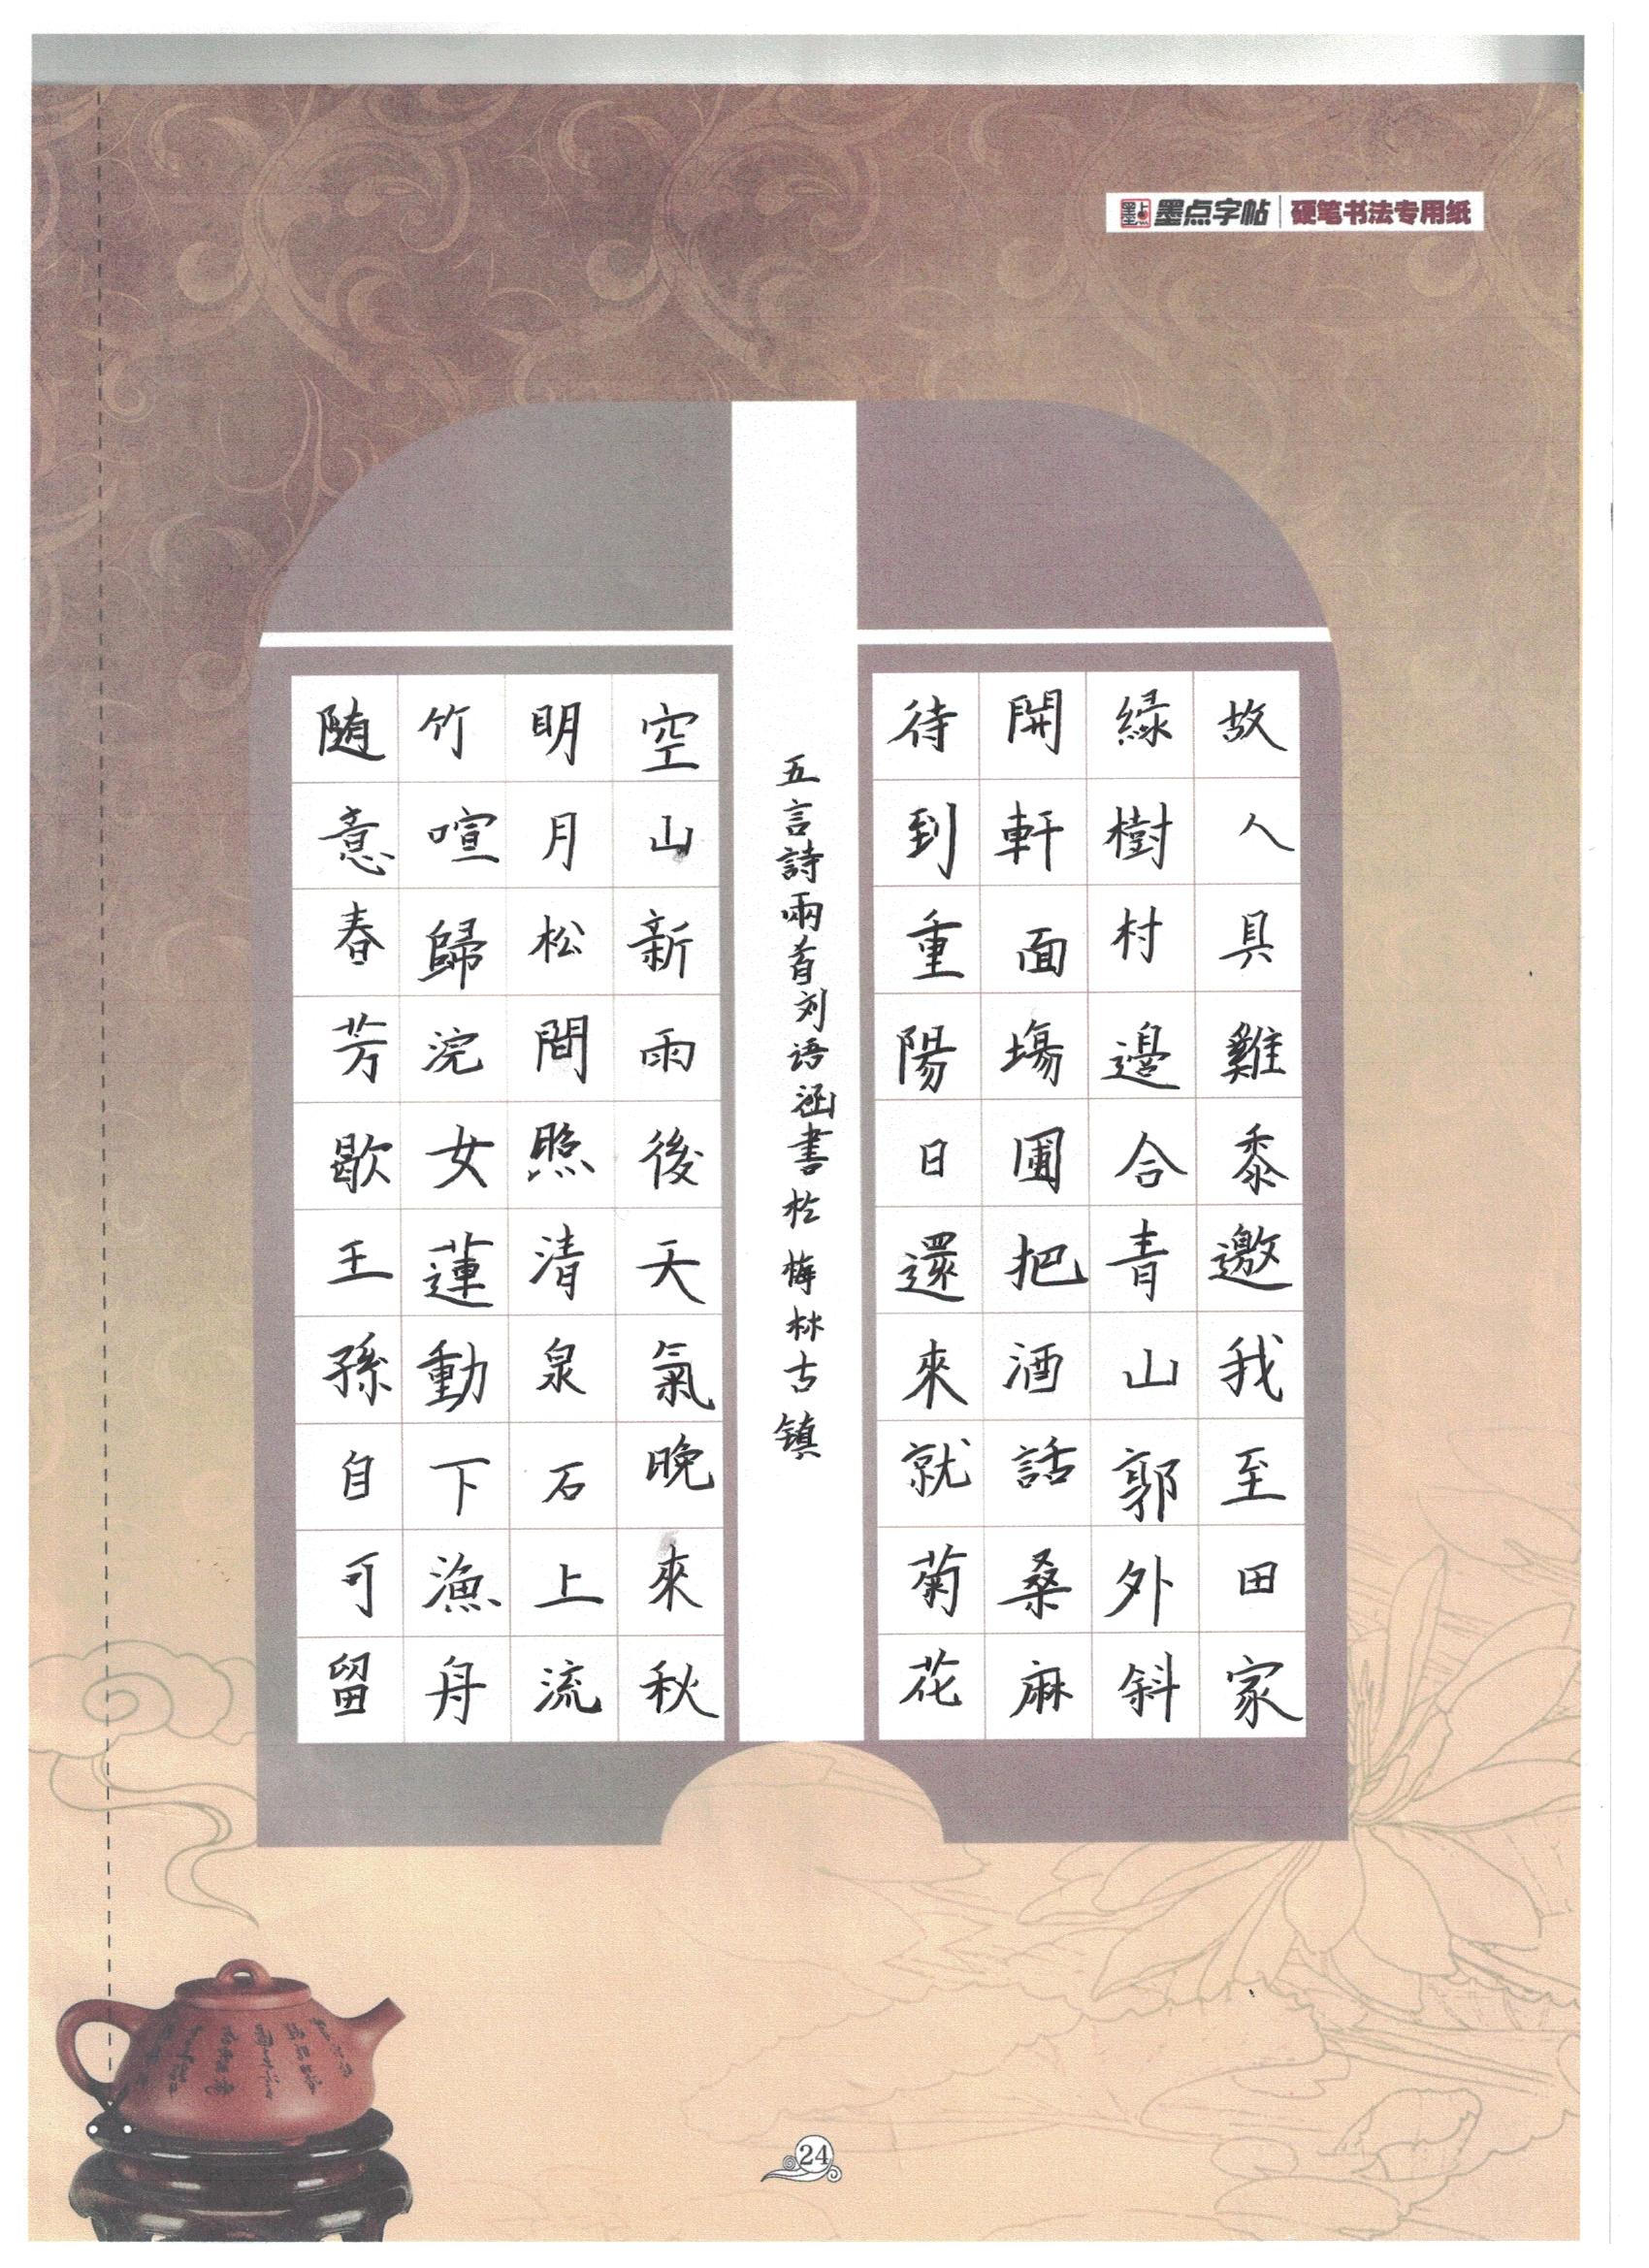 墨点字帖 硬笔书法专用纸
故人具雞黍邀我至田家
緑樹村邊合青山郭外斜
開軒面場圃把酒話桑麻
待到重陽日還來就菊花
五言詩兩首刘语涵書於梅林古镇
空山新雨後天氣晚來秋
明月松間照清泉石上流
竹喧歸浣女蓮動下漁舟
随意春芳歇王孫自可留
24